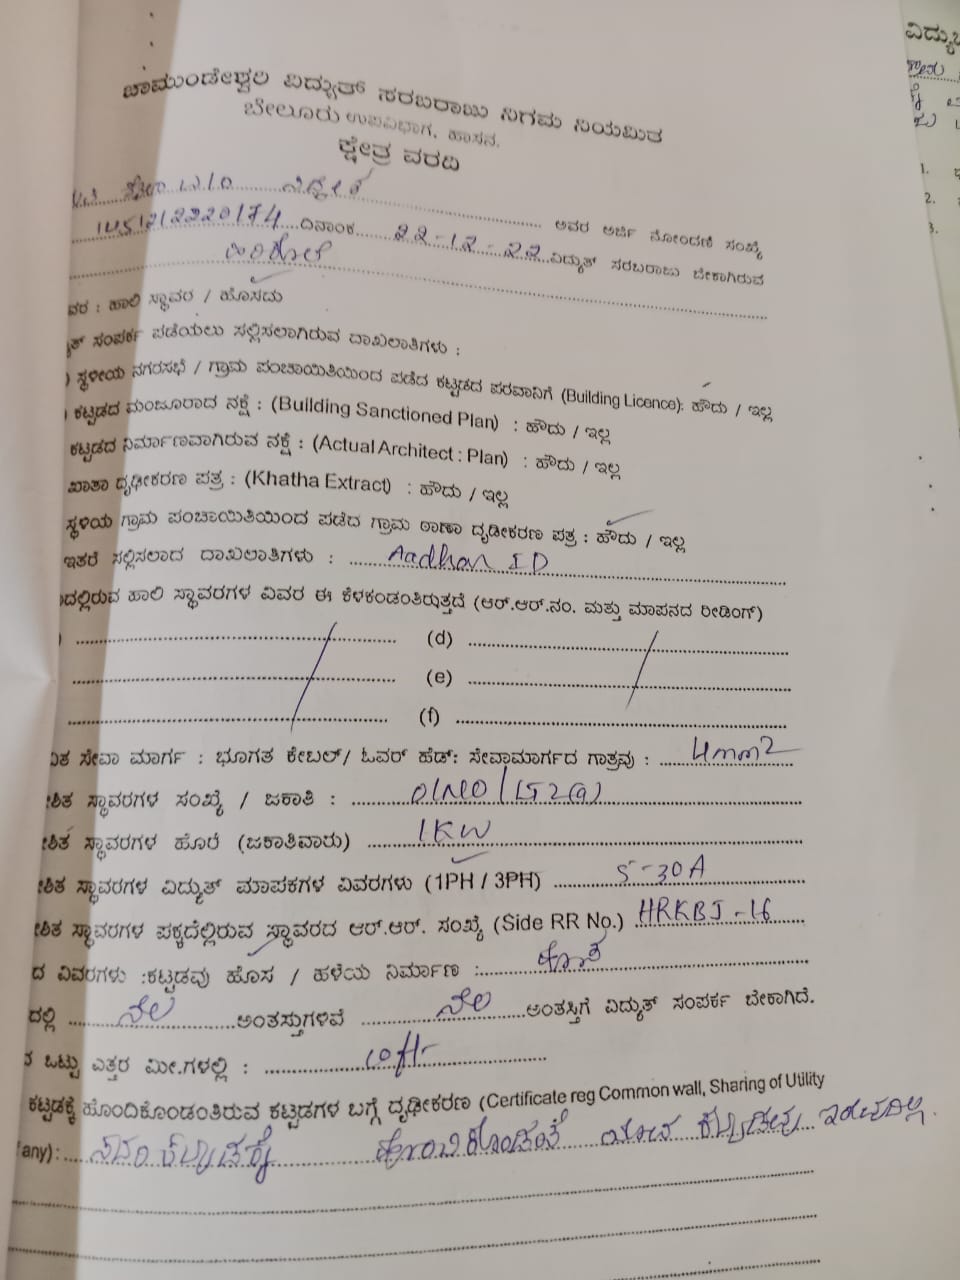 ಚಾಮುಂಡೇಶ್ವರಿ ವಿದ್ಯುತ್ ಸರಬರಾಜು ನಿಗಮ ನಿಯಮಿತ
ಬೇಲೂರು ಉಪವಿಭಾಗ, ಹಾಸನ.
ಕ್ಷೇತ್ರ ವರದಿ
ಅವರ ಅರ್ಜಿ ನೋಂದಣಿ ಸಂಖ್ಯೆ
ದಿನಾಂಕ 22-12-22 ವಿದ್ಯುತ್ ಸರಬರಾಜು ಬೇಕಾಗಿರುವ
ವರ : ಹಾಲಿ ಸ್ಥಾವರ / ಹೊಸದು
ತ್ ಸಂಪರ್ಕ ಪಡೆಯಲು ಸಲ್ಲಿಸಲಾಗಿರುವ ದಾಖಲಾತಿಗಳು :
) ಸ್ಥಳೀಯ ನಗರಸಭೆ / ಗ್ರಾಮ ಪಂಚಾಯಿತಿಯಿಂದ ಪಡೆದ ಕಟ್ಟಡದ ಪರವಾನಿಗೆ (Building Licence): ಹೌದು / ಇಲ್ಲ
ಕಟ್ಟಡದ ಮಂಜೂರಾದ ನಕ್ಷೆ : (Building Sanctioned Plan) : ಹೌದು / ಇಲ್ಲ
ಕಟ್ಟಡದ ನಿರ್ಮಾಣವಾಗಿರುವ ನಕ್ಷೆ : (Actual Architect : Plan) : ಹೌದು / ಇಲ್ಲ
ಖಾತಾ ದೃಢೀಕರಣ ಪತ್ರ : (Khatha Extract) : ಹೌದು / ಇಲ್ಲ
ಸ್ಥಳಿಯ ಗ್ರಾಮ ಪಂಚಾಯಿತಿಯಿಂದ ಪಡೆದ ಗ್ರಾಮ ಠಾಣಾ ದೃಡೀಕರಣ ಪತ್ರ : ಹೌದು / ಇಲ್ಲ
ಇತರೆ ಸಲ್ಲಿಸಲಾದ ದಾಖಲಾತಿಗಳು : Aadhar ID
ದಲ್ಲಿರುವ ಹಾಲಿ ಸ್ಥಾವರಗಳ ವಿವರ ಈ ಕೆಳಕಂಡಂತಿರುತ್ತದೆ (ಆರ್.ಆರ್.ನಂ. ಮತ್ತು ಮಾಪನದ ರೀಡಿಂಗ್)
) (d)
(e)
(f)
ತ ಸೇವಾ ಮಾರ್ಗ : ಭೂಗತ ಕೇಬಲ್/ ಓವರ್ ಹೆಡ್: ಸೇವಾಮಾರ್ಗದ ಗಾತ್ರವು : 4mm2
ಶಿತ ಸ್ಥಾವರಗಳ ಸಂಖ್ಯೆ / ಜಕಾತಿ : 01No / LT2(a)
ಶಿತ ಸ್ಥಾವರಗಳ ಹೊರೆ (ಜಕಾತಿವಾರು) 1KW
ಶಿತ ಸ್ಥಾವರಗಳ ವಿದ್ಯುತ್ ಮಾಪಕಗಳ ವಿವರಗಳು (1PH / 3PH) 5-30A
ಶಿತ ಸ್ಥಾವರಗಳ ಪಕ್ಕದೆಲ್ಲಿರುವ ಸ್ಥಾವರದ ಆರ್.ಆರ್. ಸಂಖ್ಯೆ (Side RR No.) HRKBJ-16
ದ ವಿವರಗಳು :ಕಟ್ಟಡವು ಹೊಸ / ಹಳೆಯ ನಿರ್ಮಾಣ :
ದಲ್ಲಿ ನೆಲ ಅಂತಸ್ತುಗಳಿವೆ ನೆಲ ಅಂತಸ್ತಿಗೆ ವಿದ್ಯುತ್ ಸಂಪರ್ಕ ಬೇಕಾಗಿದೆ.
ಒಟ್ಟು ಎತ್ತರ ಮೀ.ಗಳಲ್ಲಿ : 10ft
ಕಟ್ಟಡಕ್ಕೆ ಹೊಂದಿಕೊಂಡಂತಿರುವ ಕಟ್ಟಡಗಳ ಬಗ್ಗೆ ದೃಢೀಕರಣ (Certificate reg Common wall, Sharing of Utility
any): ಸದರಿ ಕಟ್ಟಡಕ್ಕೆ ಹೊಂದಿಕೊಂಡಂತೆ ಯಾವ ಕಟ್ಟಡವು ಇರುವುದಿಲ್ಲ.